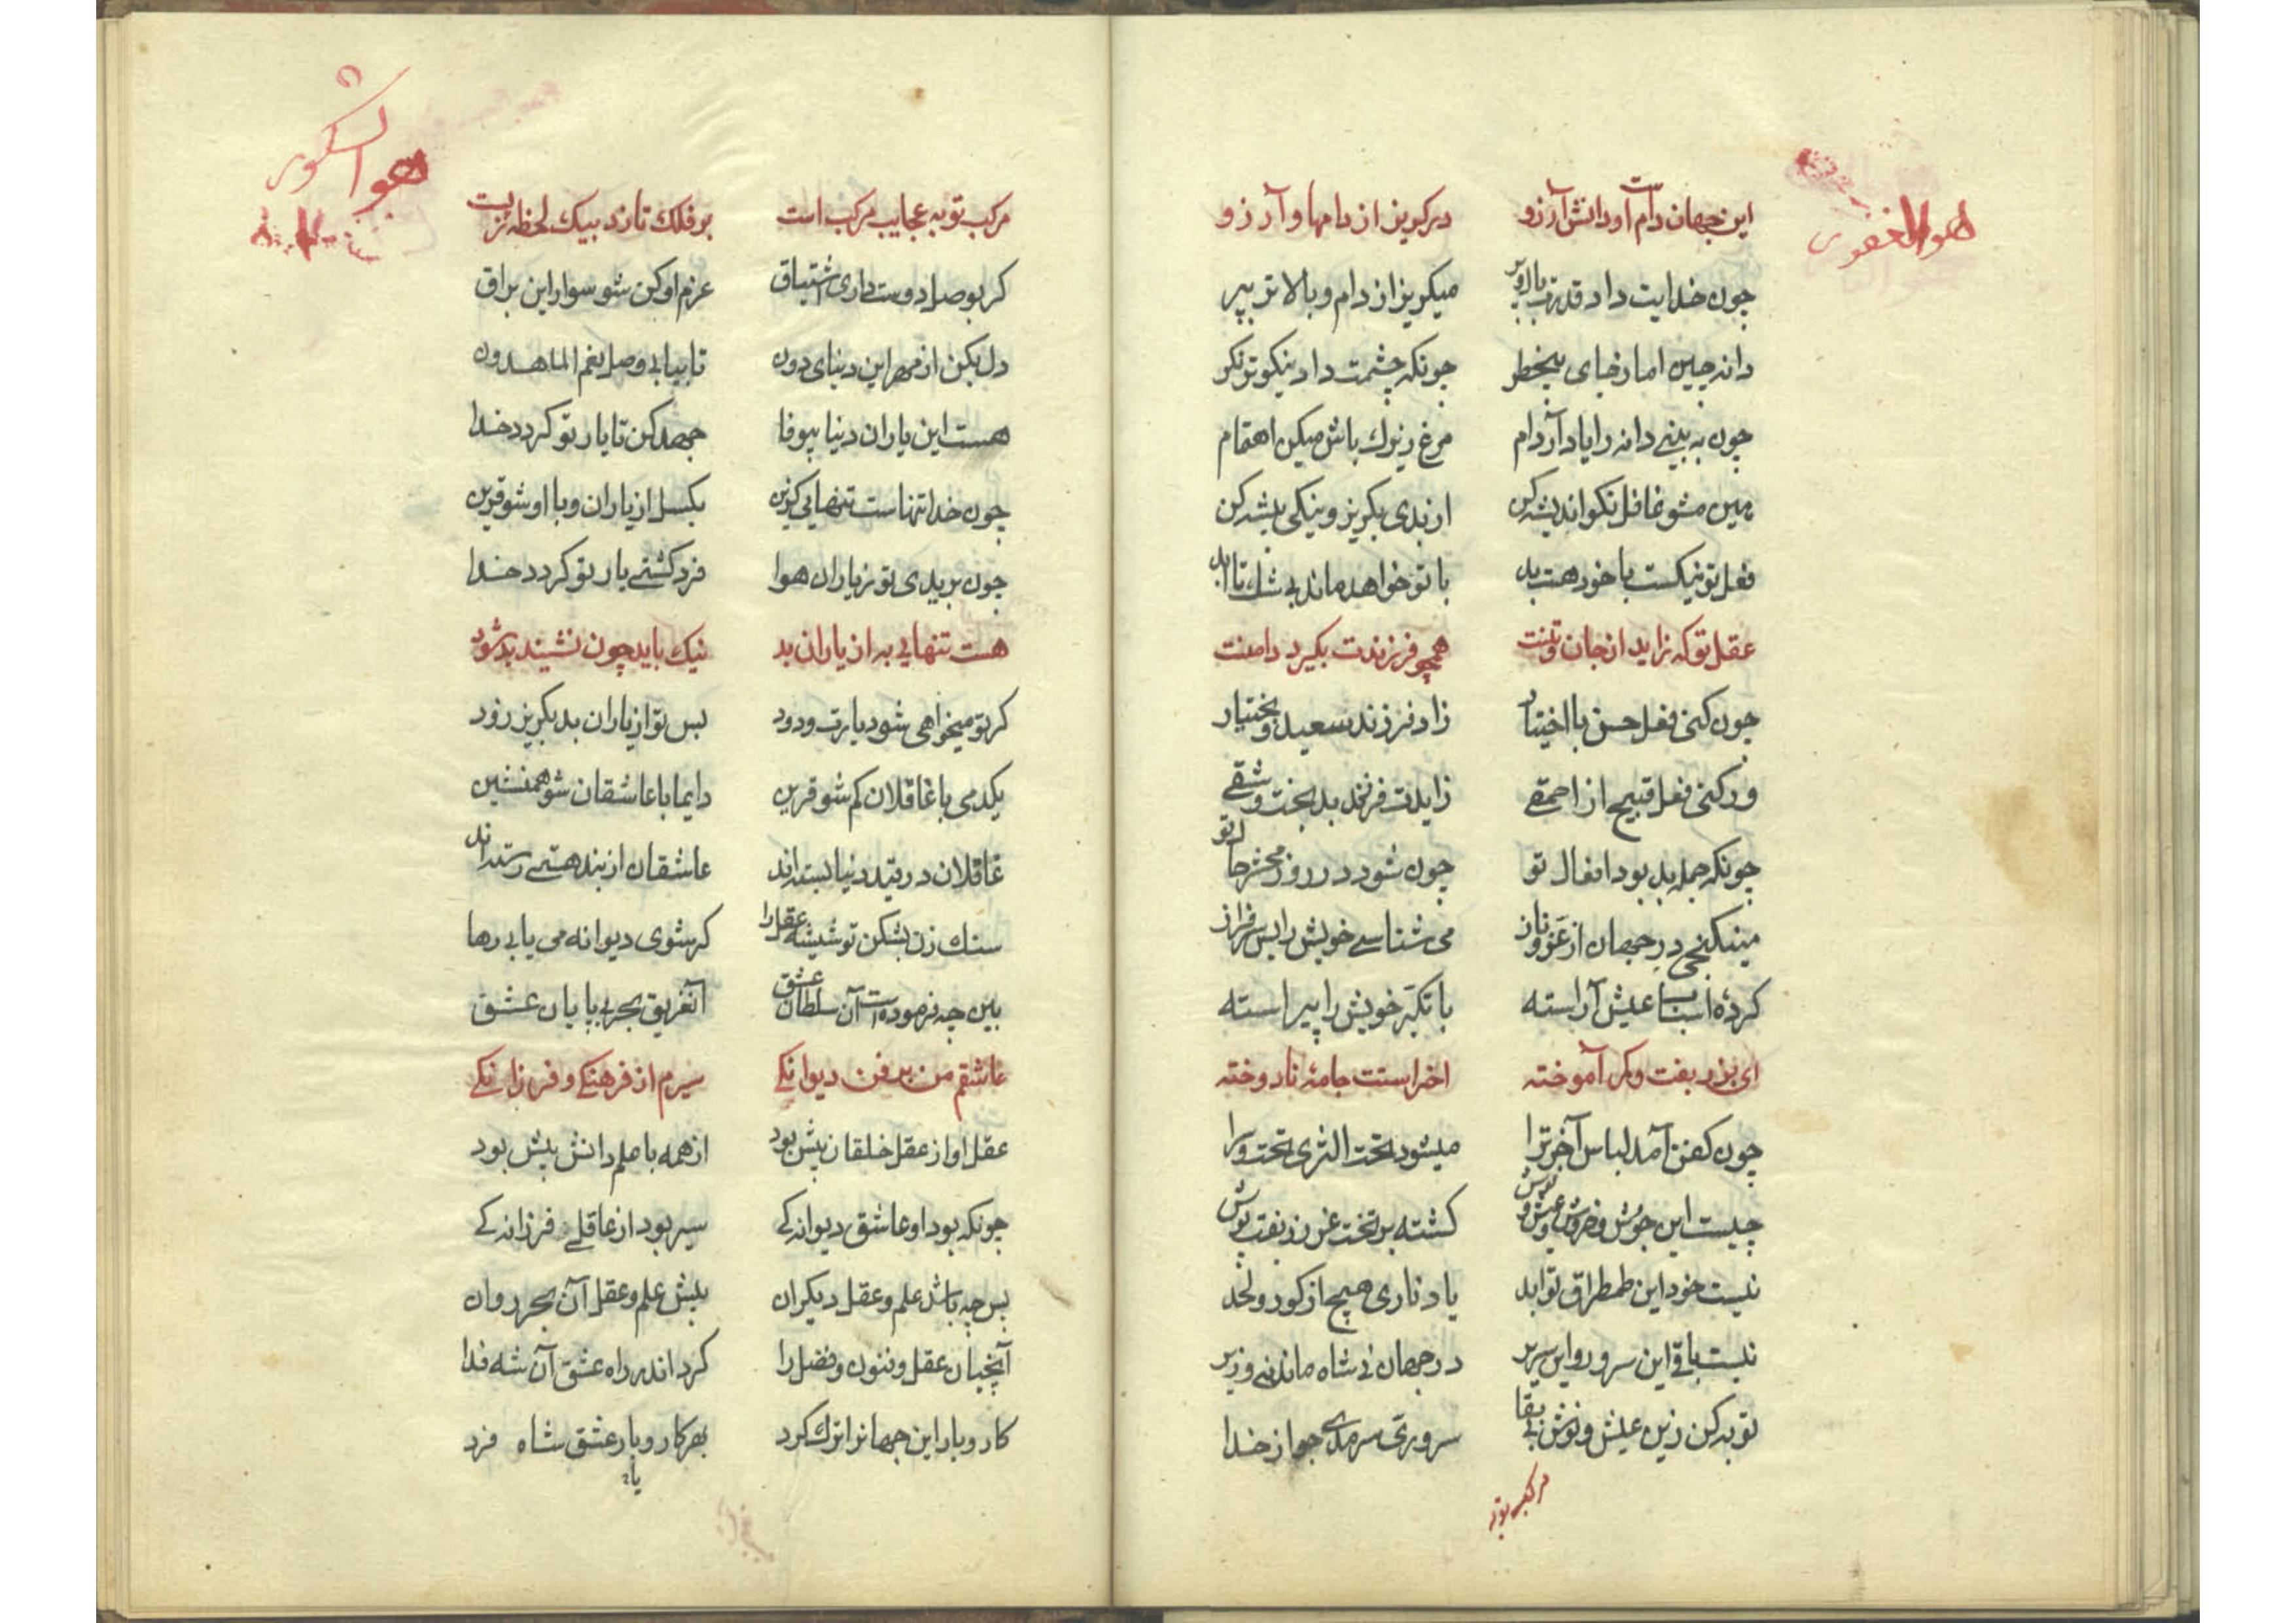 هو الغفور
این جهان دام است و دانش آرزو	در کریز از دامها و آرزو
چون خدایت داد قدرت بال و پر	میکریز از دام و بالاتر بپر
دانه چین اما ز جای بیخطر	چونکه چشمت داد نیکو تو نکر
چون به بینی دانه را یاد آر دام	مرغ زیرک باش میکن اهتمام
هین مشو غافل نکو اندیشه کن	از بدی بکریز و نیکی پیشه کن
فعل تو نیکست یا خود هست بد	با تو خواهد ماند بی شک تا ابد
عقل تو که زاید از جان و تنت	همچو فرزندت بکیرد دامنت
چون کنی فعل حسن با اختیار	زاد فرزند سعید و بختیار
ور کنی فعل قبیح از احمقی	زایدت فرزند بد بخت و شقی
چونکه جمله بد بود افعال تو	چون شود در روز محشر حال تو
مینکنجی در جهان از عز و ناز	می شناسی خویش را بس سرفراز
کردهٔ اسباب عیش آراسته	با تکبر خویش را پیراسته
ای بزر بفت و کمر آموخته	اخرا ستت جامهٔ نادوخته
چون کفن آمد لباس آخر ترا	میشود تحت الثری تخت و را
چیست این جوش و خروش و عیش و نوش	کشته بر تخت غز زربفت پوش
نیست خود این طمطراق تو ابد	یاد ناری هیچ از کور و لحد
نیست باقی این سرور و این سریر	در جهان نی شاه ماند نی وزیر
توبه کن زین عیش و نوش بی بقا	سروری سرمدی جو از خدا
مرکب توبه
هو الشکور
مرکب توبه عجایب مرکب است	بر فلک تازد بیک لحظه ز پست
کر بوصل دوست داری اشتیاق	عزم او کن شو سوار این براق
دل بکن از مهر این دنیای دون	تا بیابی وصل نعم الماهدون
هست این یاران دنیا بیوفا	جهد کن تا یار تو کردد خدا
چون خدا تنهاست تنهایی کزین	بکسل از یاران و با او شو قرین
چون بریدی تو ز یاران هوا	فرد کشتی یار تو کردد خدا
هست تنهایی به از یاران بد	نیک باید چون نشیند بد شود
کر تو میخواهی شود یارت ودود	پس تو از یاران بد بکریز زود
یکدمی با غافلان کم شو قرین	دایما با عاشقان شو همنشین
غافلان در قید دنیا بسته اند	عاشقان از بند هستی رسته اند
سنک زن بشکن تو شیشه عقل را	کر شوی دیوانه می یابی رها
بین چه فرموده است آن سلطان عشق	آن غریق بحر بی پایان عشق
عاشقم من بر فن دیوانکی	سیرم از فرهنکی و فرزانکی
عقل او از عقل خلقان بیش بود	از همه با علم دانش بیش بود
چونکه بود او عاشق دیوانه کی	سیر بود از عاقلی فرزانه کی
پس چه باشد علم و عقل دیکران	پیش علم و عقل آن بحر روان
آنچنان عقل و فنون و فضل را	کرد اندر راه عشق آن شه فدا
کار و بار این جهانرا ترک کرد	بهر کار و بار عشق شاه فرد